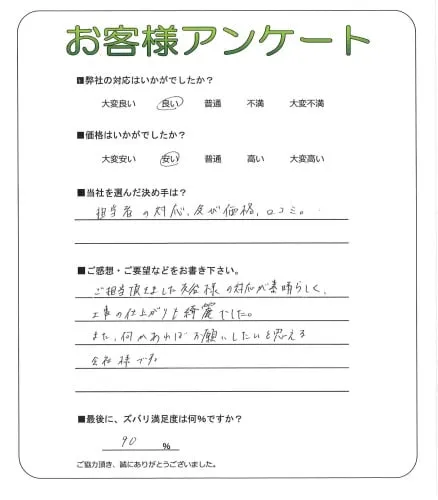 お客様アンケート
■弊社の対応はいかがでしたか？
大変良い 良い 普通 不満 大変不満
■価格はいかがでしたか？
大変安い 安い 普通 高い 大変高い
■当社を選んだ決め手は？
担当者の対応、及び価格、口コミ。
■ご感想・ご要望などをお書き下さい。
ご担当頂きました 様の対応が素晴らしく、
工事の仕上がりも綺麗でした。
また、何かあればお願いしたいと思える
会社様です
■最後に、ズバリ満足度は何％ですか？
90 ％
ご協力頂き、誠にありがとうございました。